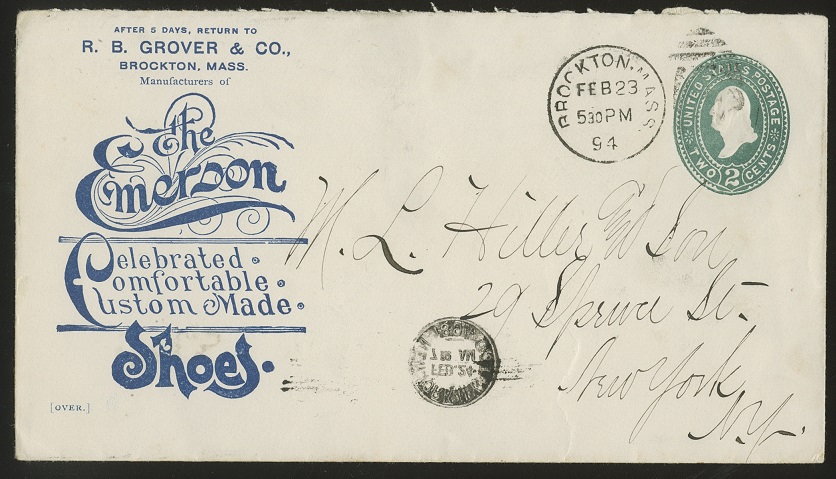 AFTER 5 DAYS, RETURN TO
R. B. GROVER & CO.,
BROCKTON, MASS.
Manufacturers of
The
Emerson
Celebrated
Comfortable
Custom Made
Shoes.
[OVER.]
BROCKTON, MASS.
FEB 23
530 PM
94
UNITED STATES POSTAGE
TWO 2 CENTS
M. L. Hiller & Son
29 Spruce St.
New York
N.Y.